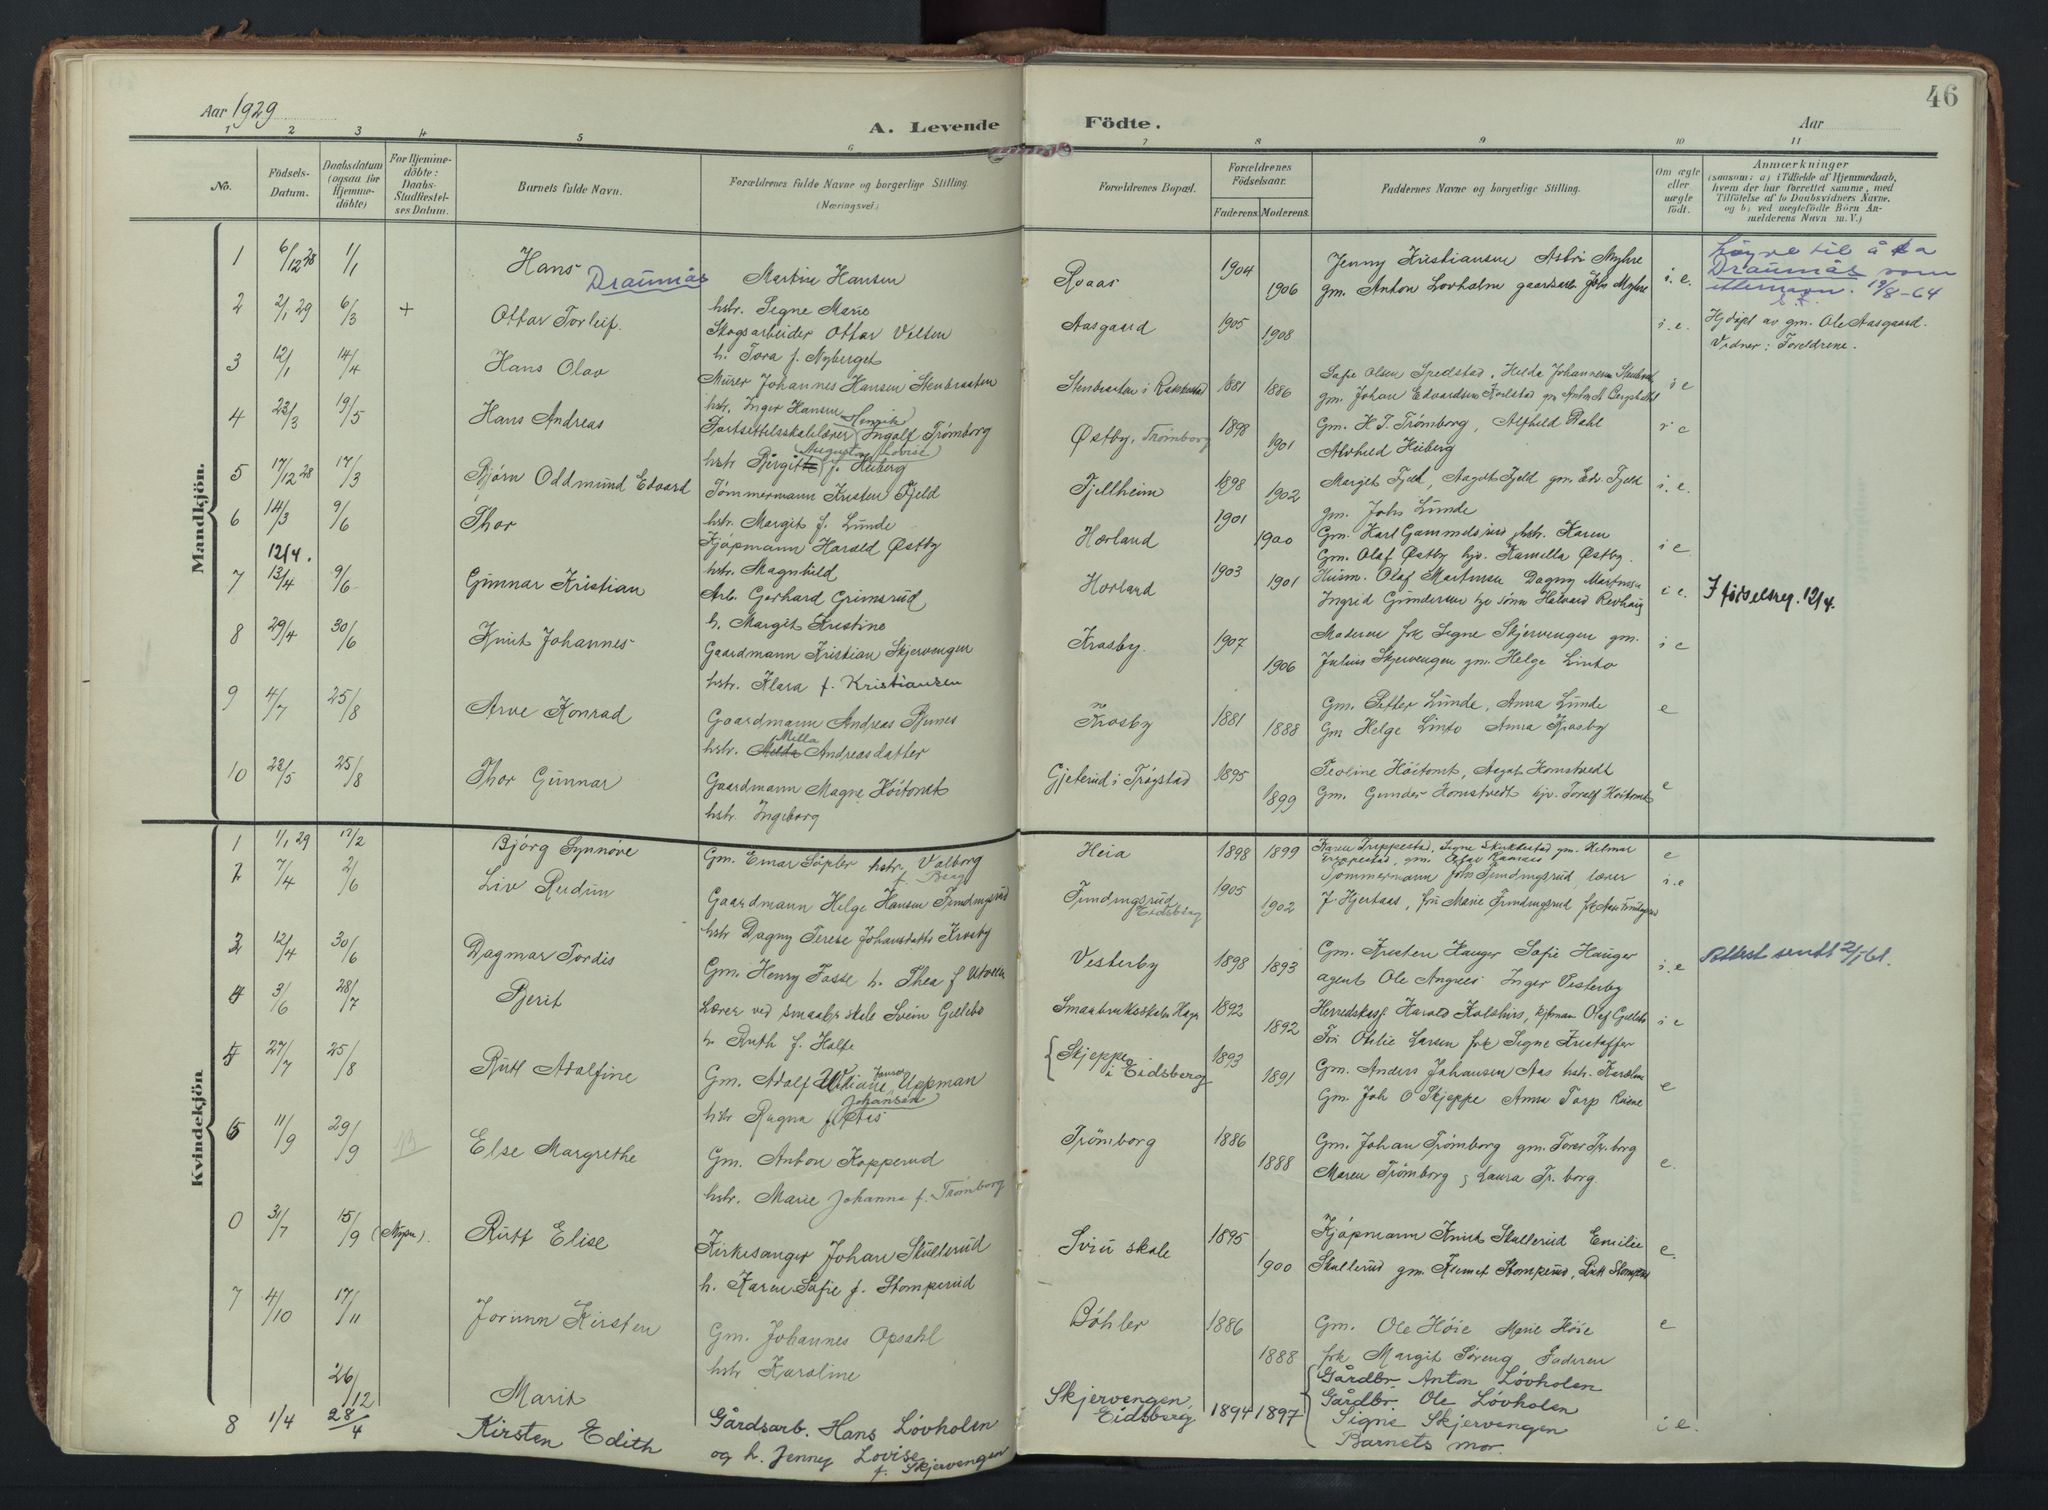 46
Aar 1929
A. Levende Födte.
Aar
1 2 3 4 5 6 7 8 9 10 11
No.
Födsels-Datum.
Daabsdatum (ogsaa for Hjemme-döbte)
For Hjemme-döbte: Daabs-Stadfæstel-ses Datum.
Barnets fulde Navn.
Forældrenes fulde Navne og borgerlige Stilling.
(Næringsvei.)
Forældrenes Bopæl.
Forældrenes Födselsaar.
Faderens. Moderens.
Faddernes Navne og borgerlige Stilling.
Om ægte eller uægte födt.
Anmærkninger
(saasom: a) i Tilfælde af Hjemmedaab, hvem der har forrettet samme, med Tilföielse af to Daabsvidners Navne. og b) ved uægtefödte Börn An-melderens Navn m. V.)
Mandkjön.
1 6/12 28 1/1 Hans Draumås Martin Hansen
hstr. Signe Marie
1904 1906
Jenny Kristiansen Astri Myhre
gm. Anton Lovholm gaardsarb. Johs Myhre
i. e.
Løyve til å ta
Draumås som
ettenavn. 19/8-64
2 2/1 29 6/3 + Ottar Torleif.
Skogsarbeider Ottar Velten
h. Tora f. Nyberget
Aasgaard 1905 1908 i. e.
Hjdøpt av gm. Ole Aasgaard.
Vidner: Foreldrene.
3 12/1 14/4 Hans Olav
Murer Johannes Hansen Stenbraaten
hstr. Inger Hansen
Stenbraaten i Rakkestad 1881 1886
Sofie Olsen Spedstad, Helda Johannesen
gm. Johan Edvardsen Karlstad gm Anton A
i e
4 23/3 19/5 Hans Andreas
Fortsettelsesskolelærer Henrik Ingolf Trømborg
hstr Birgitte Augusta Lovise f. Heiberg
Østby, Trømborg 1898 1901
Gm. H. J. Trømborg, Alfhild Dahl
Alvhild Heiberg
i e
5 17/12 28 17/3 Bjørn Oddmund Edvard
Tømmermann Kristen Fjeld
hstr. Margit f. Lunde
Fjellheim 1898 1902
Margit Fjeld, Aagot Fjeld gm. Edv. Fjeld
gm. Johs Lunde
i. e.
6 14/3 9/6 Thor
Kjøpmann Harald Østby
hstr. Magnhild
Hærland 1901 1900
Gm. Karl Gammelsrud, hstr. Karen
Gm. Olaf Østby hjv. Kamilla Østby.
i e.
12/4.
7 13/4 9/6 Gunnar Kristian
Arb. Gerhard Grimsrud
h. Margit Kristine
Horland 1903 1901
Husm. Olaf Martinsen Dagny Martinsen
Ingrid Gundersen hjv sønn Halvard Revhaug
i e.
I fødselsreg. 12/4.
8 29/4 30/6 Knut Johannes
Gaardmann Kristian Skjervengen
hstr. Klara f. Kristiansen
Krosby. 1907 1906
Moderen frk Signe Skjervengen gm.
Julius Skjervengen gm. Helge Linto
i e
9 4/7 25/8 Arve Konrad
Gaardmann Andreas Bunes
hstr. Milla Andreasdatter
Krosby 1881 1888
Gm. Petter Lunde, Anna Lunde
Gm Helge Linto Anna Krosby
e
10 22/5 25/8 Thor Gunnar
Gaardmann Magne Høitomt
hstr. Ingeborg
Gjeterud i Trøgstad 1895 1899
Teoline Høitomt, Aagot Homstvedt
Gm. Gunder Homstvedt hjv. Toralf Høitomt
e
Kvindekjön
1 1/1 29 17/2 Bjørg Synnøve
Gm. Einar Søpler hstr. Valborg
f. Berg
Heia 1898 1899
Karen Trippestad, Signe Skukkestad gm. Hilmar
Trippestad, gm. Olav Kaaraas
e
2 7/4 2/6 Liv Rudun
Gaardmann Helge Hansen Fundingsrud
hstr Dagny Terese Johansdatte Krosby
Fundingsrud Eidsberg 1905 1902
Tømmermann Johs Fundingsrud, lærer
J. Hjertaas, fru Marie Fundingsrud
i. e
3 12/4 30/6 Dagmar Tordis
Gm. Henry Fosse h. Thea f Utveen
Vesterby 1898 1893
Gm. Kristen Hauger Sofie Hauger
agent Ole Angnes Inger Vesterby
i. e
Attest sendt 2/1 61.
4 3/6 28/7 Berit
Lærer ved smaabr skole Svein Gillebo
h. Ruth f. Holte
Smaabruksskolen Haga 1892 1892
Herredskasj Harald Kolshus, kjøpman Olaf Gillebo
Fru Otilie Larsen frk Signe Kristoffer
i e
5 27/7 25/8 Rutt Adolfine
Gm. Adolf Viliane Jansen Uppman
hstr Ragna f Johansen Aas
Skjeppe i Eidsberg 1893 1891
Gm. Anders Johansen Aas hstr. Karoline
Gm. Joh O Skjeppe Anna Torp
e
6 11/9 29/9 Else Margrethe
Gm. Anton Kopperud
hstr. Marie Johanna f. Trømborg
Trømborg 1886 1888
Gm. Johan Trømborg gm. Torer Tr. borg
Maren Trømborg, Laura Tr. borg.
e.
0 31/7 15/9 (Mysen). Rutt Elise
Kirkesanger Johan Skullerud
h. Karen Sofie f. Stomperud
skole 1895 1900
Kjøpmann Knut Skullerud Emilie
Skullerud gm. Klemet Stomperud, Rutt Stomperud
e.
7 4/10 17/11 Jorunn Kirsten
Gm. Johannes Opsahl
hstr Karoline
Bøhler 1886 1888
Gm. Ole Høie Marie Høie
frk Margit Søreng Faderen
e
26/12 Marit
8 1/4 28/4 Kirsten Edith
Gårdsarb. Hans Løvholen
og h. Jenney Lovise
f. Skjervengen
Skjervengen Eidsberg 1894 1897
Gårdbr. Anton Løvholen
Gårdbr. Ole Løvholen
Signe Skjervengen
Barnets mor.
i e.